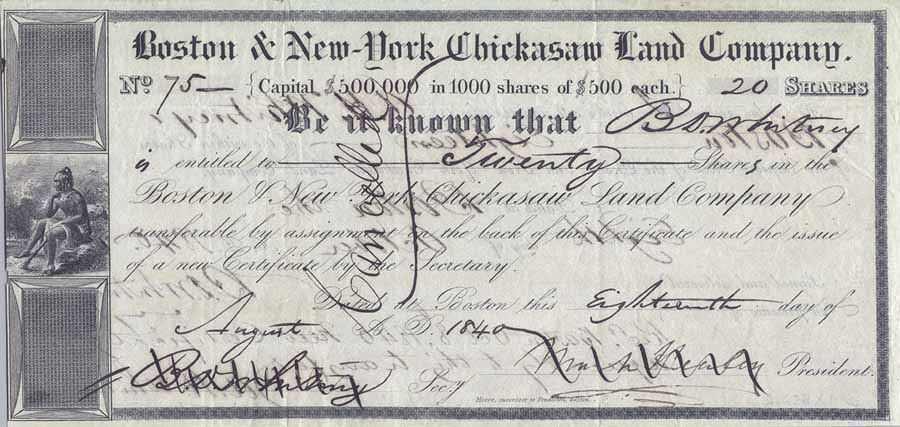 Boston & New-York Chickasaw Land Company.
No. 75 — {Capital $500,000 in 1000 shares of $500 each.} 20 Shares
Be it known that B D Whitney
is entitled to Twenty Shares in the
Boston & New York Chickasaw Land Company
transferable by assignment on the back of this Certificate and the issue
of a new Certificate by the Secretary.
Dated at Boston this Eighteenth day of
August A. D. 1840
Secy President.
Moore, successor to Pendleton, Boston.
Cancelled